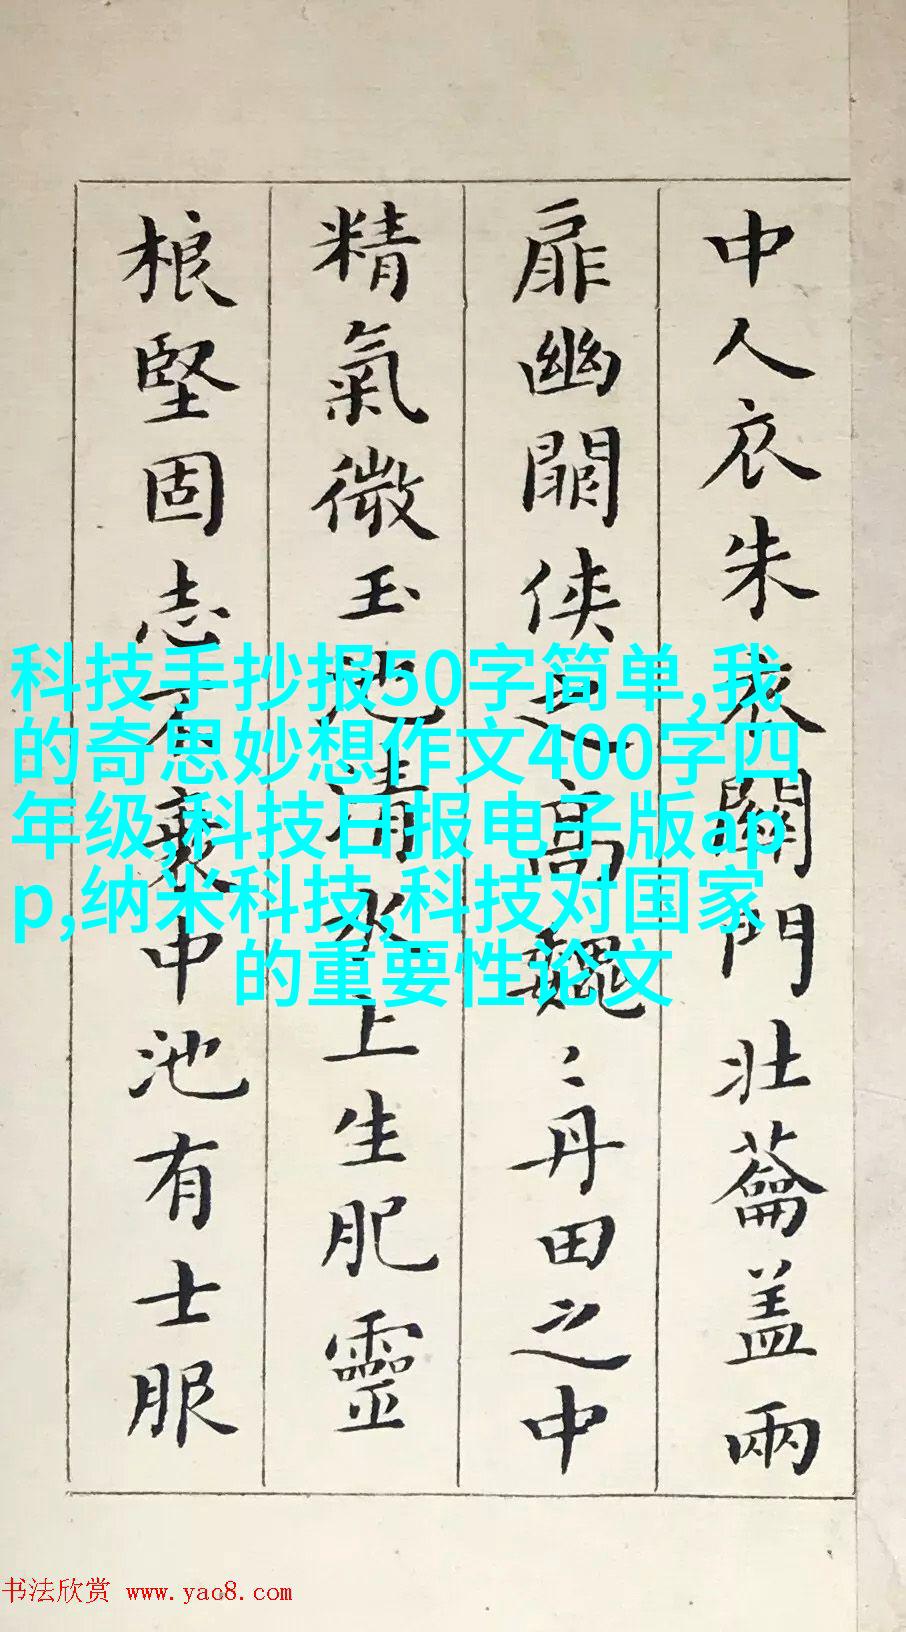 中人衣朱衣關門壯蘥盖兩
扉幽闕侠之高巍〻丹田之中
精氣微玉池清水上生肥靈
根堅固志不衰中池有士服
科技手抄报50字简单,我
的奇思妙想作文400字四
年级,科技日报电子版ap
p,纳米科技,科技对国家
的重要性论文
书法欣赏 www.yac8.com